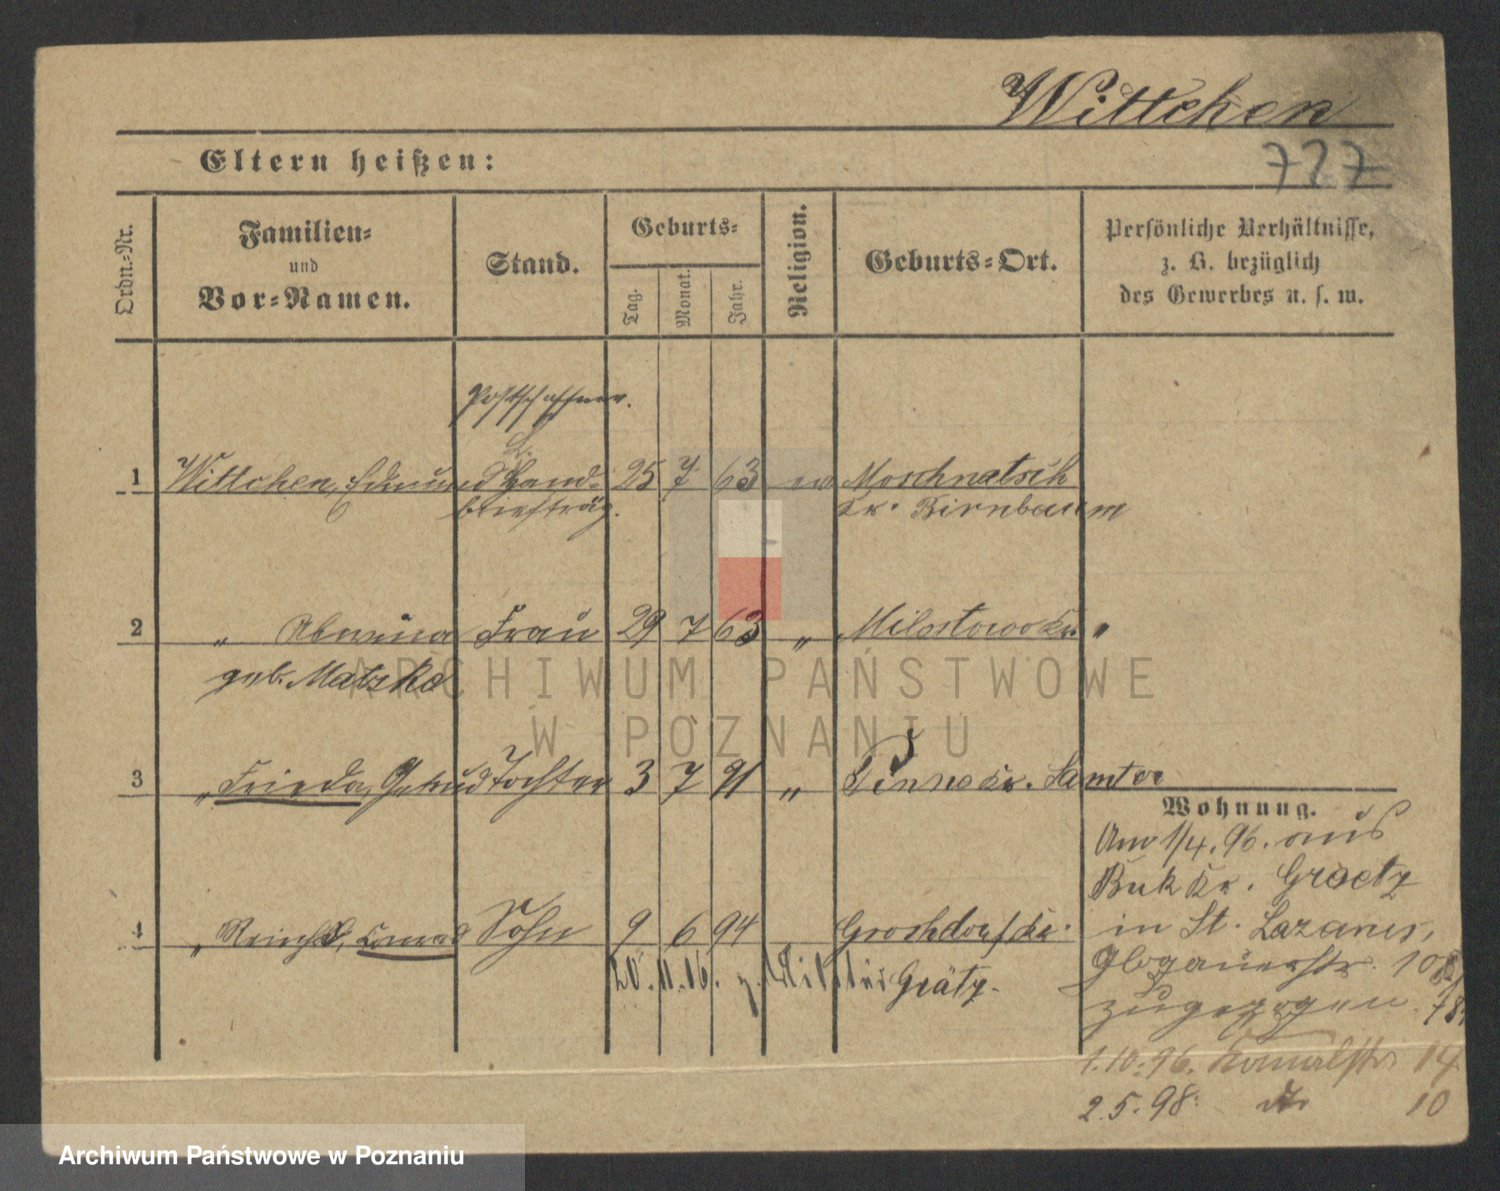 Wittchen
727
Eltern heißen:
Ordn.-Nr.
Familien-
und
Vor-Namen.
Stand.
Geburts-
Tag.
Monat.
Jahr.
Religion.
Geburts-Ort.
Persönliche Verhältnisse,
z. B. bezüglich
des Gewerbes u. s. w.
Postschaffner.
1 Wittchen, Edmund Land- 25 7 63 ev Moschnatsih
briefträg. Kr. Birnbaum
2 " Frau 29 7 63 " Milostowo Kr. "
geb. Matzke
ARCHIWUM PAŃSTWOWE
W POZNANIU
3 " Frieda, Tochter 3 7 91 " Pinne Kr. Samter
Wohnung.
Am 1/4. 96. aus
Buk Kr. Graetz
4 " Reinhold, Konrad Sohn 9 6 94 Groshdorf Kr.
in St. Lazarus,
20. 11. 16. z. Militär Grätz.
Glogauerstr. 108
zugezogen.
1.10.96. 14
2.5.98. do 10
Archiwum Państwowe w Poznaniu